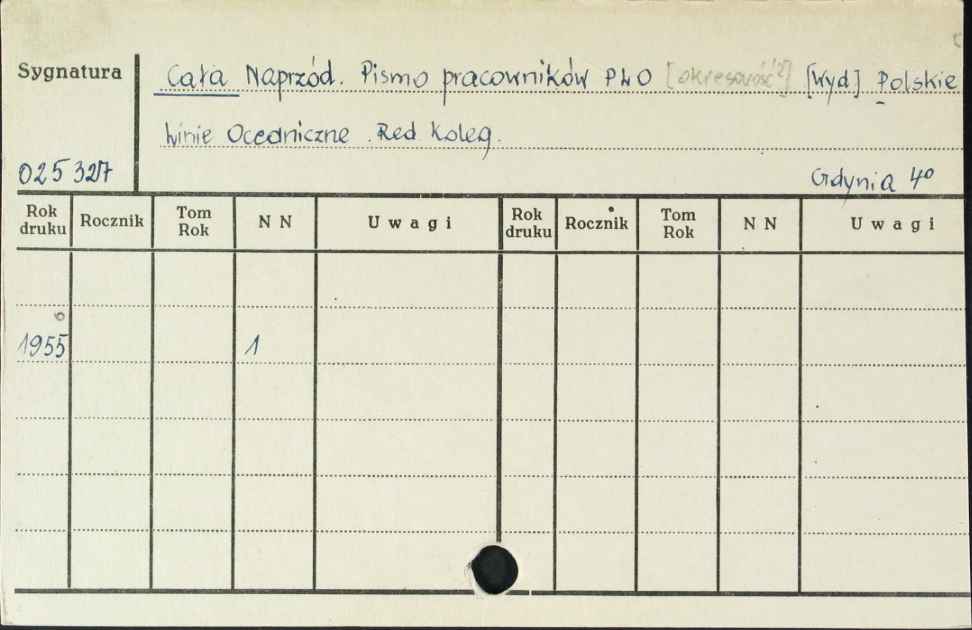 Sygnatura
Cała Naprzód. Pismo pracowników PLO [okresowość?] [Wyd] Polskie
Linie Oceaniczne. Red Koleg.
025327
Gdynia 4º
Rok druku Rocznik Tom Rok N N Uwagi Rok druku Rocznik Tom Rok N N Uwagi
6
1955 1